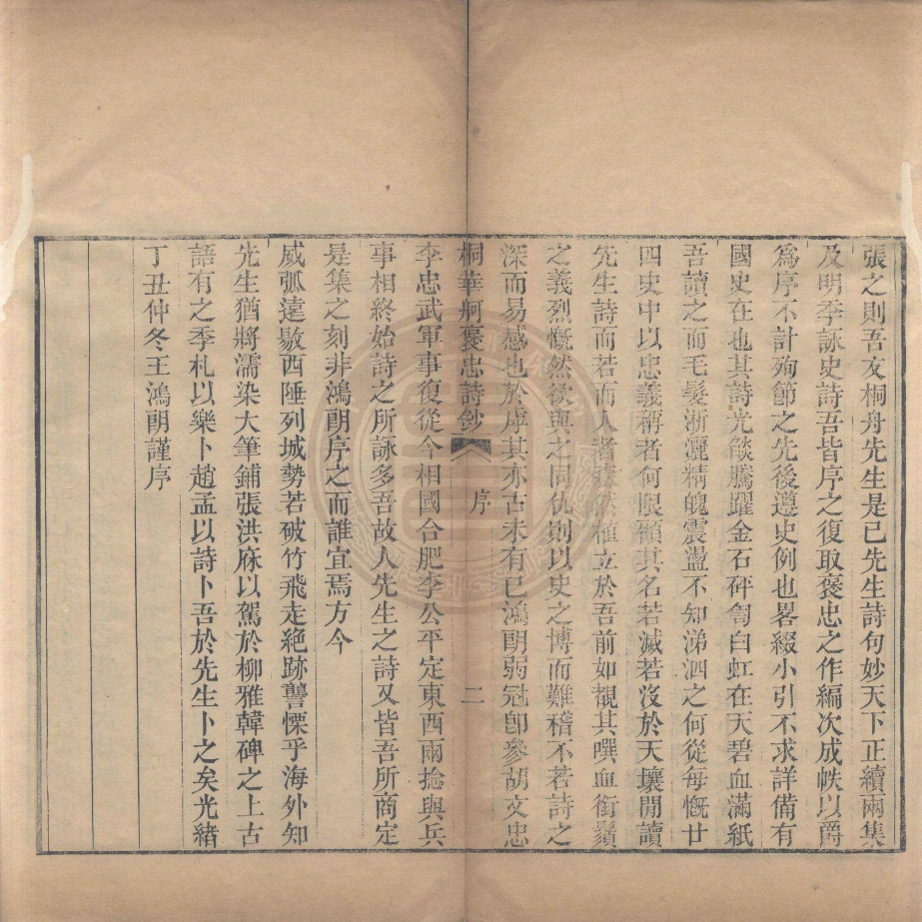 張之則吾友桐舟先生是已先生詩句妙天下正續兩集
及明季詠史詩吾皆序之復取褒忠之作編次成帙以爵
爲序不計殉節之先後遵史例也畧綴小引不求詳備有
國史在也其詩光燄騰躍金石砰訇白虹在天碧血滿紙
吾讀之而毛髮淅灑精魄震盪不知涕泗之何從每慨廿
四史中以忠義稱者何限顧其名若滅若沒於天壤閒讀
先生詩而若而人者植立於吾前如覩其噀血銜鬚
之義烈慨然欲與之同仇則以史之博而難稽不若詩之
深而易感也於虖其亦古未有已鴻朗弱冠卽參胡文忠
桐華舸褒忠詩鈔 序 二
李忠武軍事復從今相國合肥李公平定東西兩捻與兵
事相終始詩之所詠多吾故人先生之詩又皆吾所商定
是集之刻非鴻朗序之而誰宜焉方今
威弧遠敭西陲列城勢若破竹飛走絕跡讋慄乎海外知
先生猶將濡染大筆鋪張洪庥以駕於柳雅韓碑之上古
語有之季札以樂卜趙孟以詩卜吾於先生卜之矣光緒
丁丑仲冬王鴻朗謹序